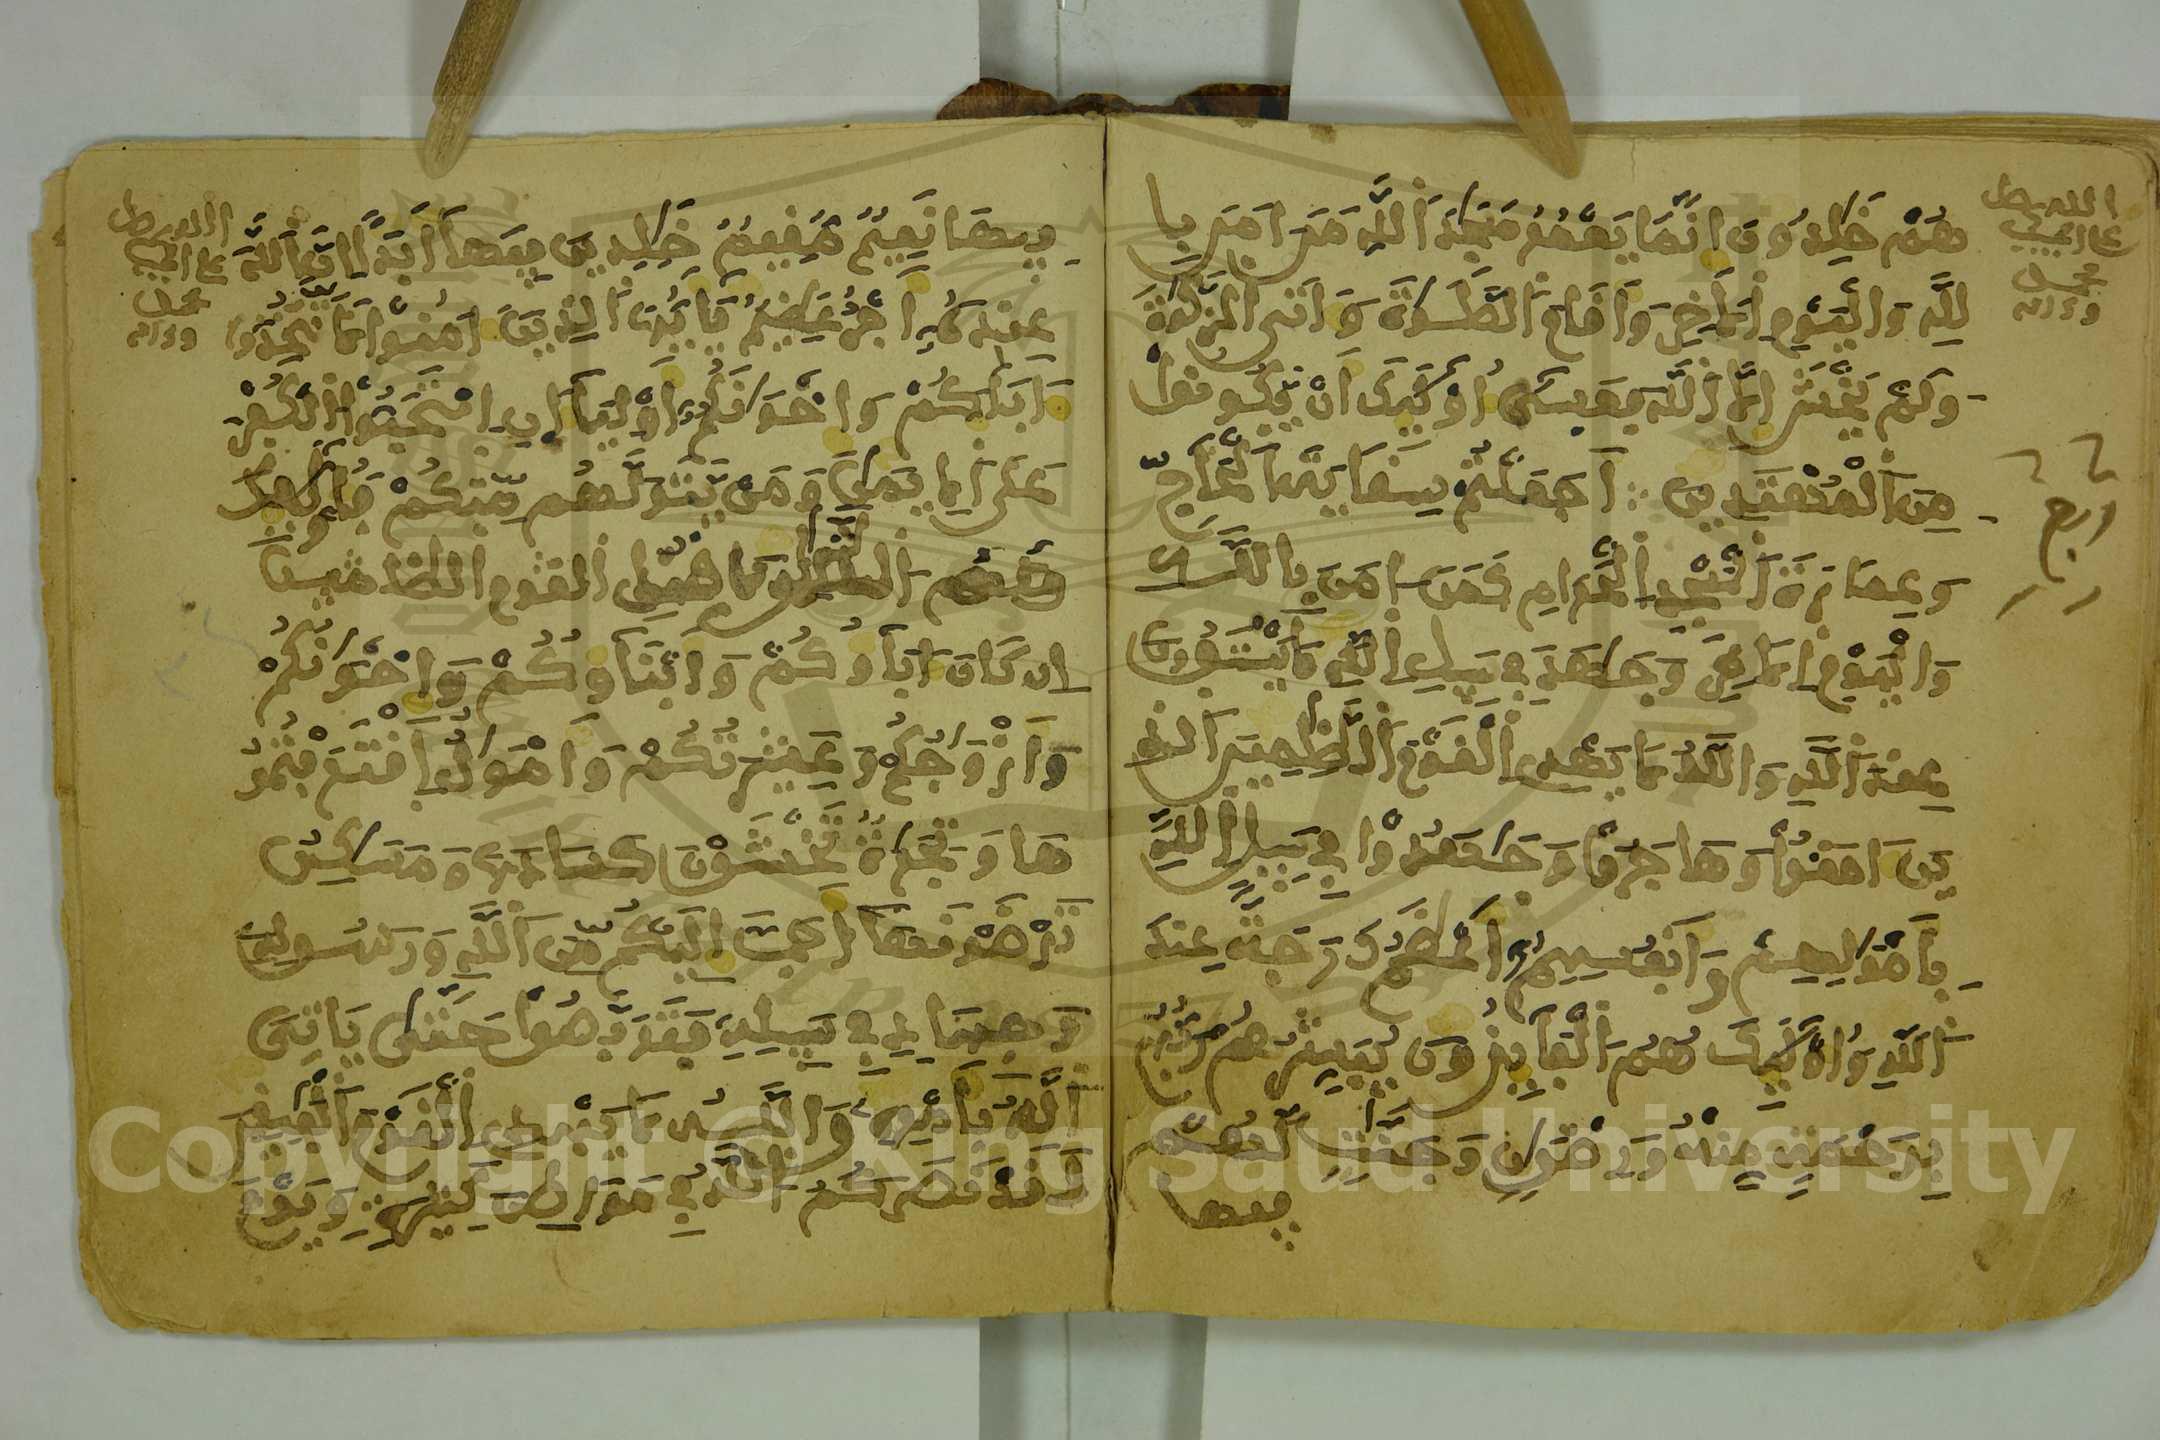 هُمْ خَٰلِدُونَ انَّمَا يَعْمُرُ مَسَٰجِدَ اَ۬للَّهِ مَنَ اٰمَنَ بِا
للَّهِ وَالْيَوْمِ اِ۬لَاخِرِ وَأَقَامَ اَ۬لصَّلَوٰةَ وَءَاتَى اَ۬لزَّكَوٰةَ
وَلَمْ يَخْشَ إِلَّا اَ۬للَّهَ فَعَسَىٰ أُوْلَٰئِكَ أَنْ يَّكُونُواْ
مِنَ اَ۬لْمُهْتَدِينَ أَجَعَلْتُمْ سِقَايَةَ اَ۬لْحَاجِّ
وَعِمَارَةَ اَ۬لْمَسْجِدِ اِ۬لْحَرَامِ كَمَنَ اٰمَنَ بِاللَّهِ
وَالْيَوْمِ اِ۬لَاخِرِ وَجَٰهَدَ فِي سَبِيلِ اِ۬للَّهِ لَا يَسْتَوُونَ
عِندَ اَ۬للَّهِ وَاللَّهُ لَا يَهْدِي اِ۬لْقَوْمَ اَ۬لظَّٰلِمِينَ اَ۬لذِ
ينَ ءَامَنُواْ وَهَاجَرُواْ وَجَٰهَدُواْ فِي سَبِيلِ اِ۬للَّهِ
بِأَمْوَٰلِهِمْ وَأَنفُسِهِمُۥ أَعْظَمُ دَرَجَةً عِندَ
اَ۬للَّهِ وَأُوْلَٰئِكَ هُمُ اَ۬لْفَآئِزُونَ يُبَشِّرُهُمْ رَبُّهُم
بِرَحْمَةٍ مِّنْهُ وَرِضْوَٰنٍ وَجَنَّٰتٍ لَّهُمْ
فيها
فِيهَا نَعِيمٌ مُّقِيمٌ خَٰلِدِينَ فِيهَا أَبَداً اِنَّ اَ۬للَّهَ
عِندَهُۥ أَجْرٌ عَظِيمٌ يَٰأَيُّهَا اَ۬لذِينَ ءَامَنُواْ لَا تَتَّخِذُواْ
ءَابَآءَكُمْ وَإِخْوَٰنَكُمُۥ أَوْلِيَآءَ اِنِ اِ۪سْتَحَبُّواْ اُ۬لْكُفْرَ
عَلَى اَ۬لِايمَٰنِ وَمَنْ يَّتَوَلَّهُم مِّنكُمْ فَأُوْلَٰئِكَ
هُمُ اُ۬لظَّٰلِمُونَ
إِن كَانَ ءَابَآؤُكُمْ وَأَبْنَآؤُكُمْ وَإِخْوَٰنُكُمْ
وَأَزْوَٰجُكُمْ وَعَشِيرَتُكُمْ وَأَمْوَٰلٌ اِ۪قْتَرَفْتُمُو
هَا وَتِجَٰرَةٌ تَخْشَوْنَ كَسَادَهَا وَمَسَٰكِنُ
تَرْضَوْنَهَا أَحَبَّ إِلَيْكُم مِّنَ اَ۬للَّهِ وَرَسُولِهِ
وَجِهَادٍ فِي سَبِيلِهِ فَتَرَبَّصُواْ حَتَّىٰ يَاتِيَ
اَ۬للَّهُ بِأَمْرِهِ وَاللَّهُ لَا يَهْدِي اِ۬لْقَوْمَ اَ۬لْفَٰسِقِينَ
لَقَدْ نَصَرَكُمُ اُ۬للَّهُ فِي مَوَاطِنَ كَثِيرَةٍ وَيَوْمَ
Copyright © King Saud University